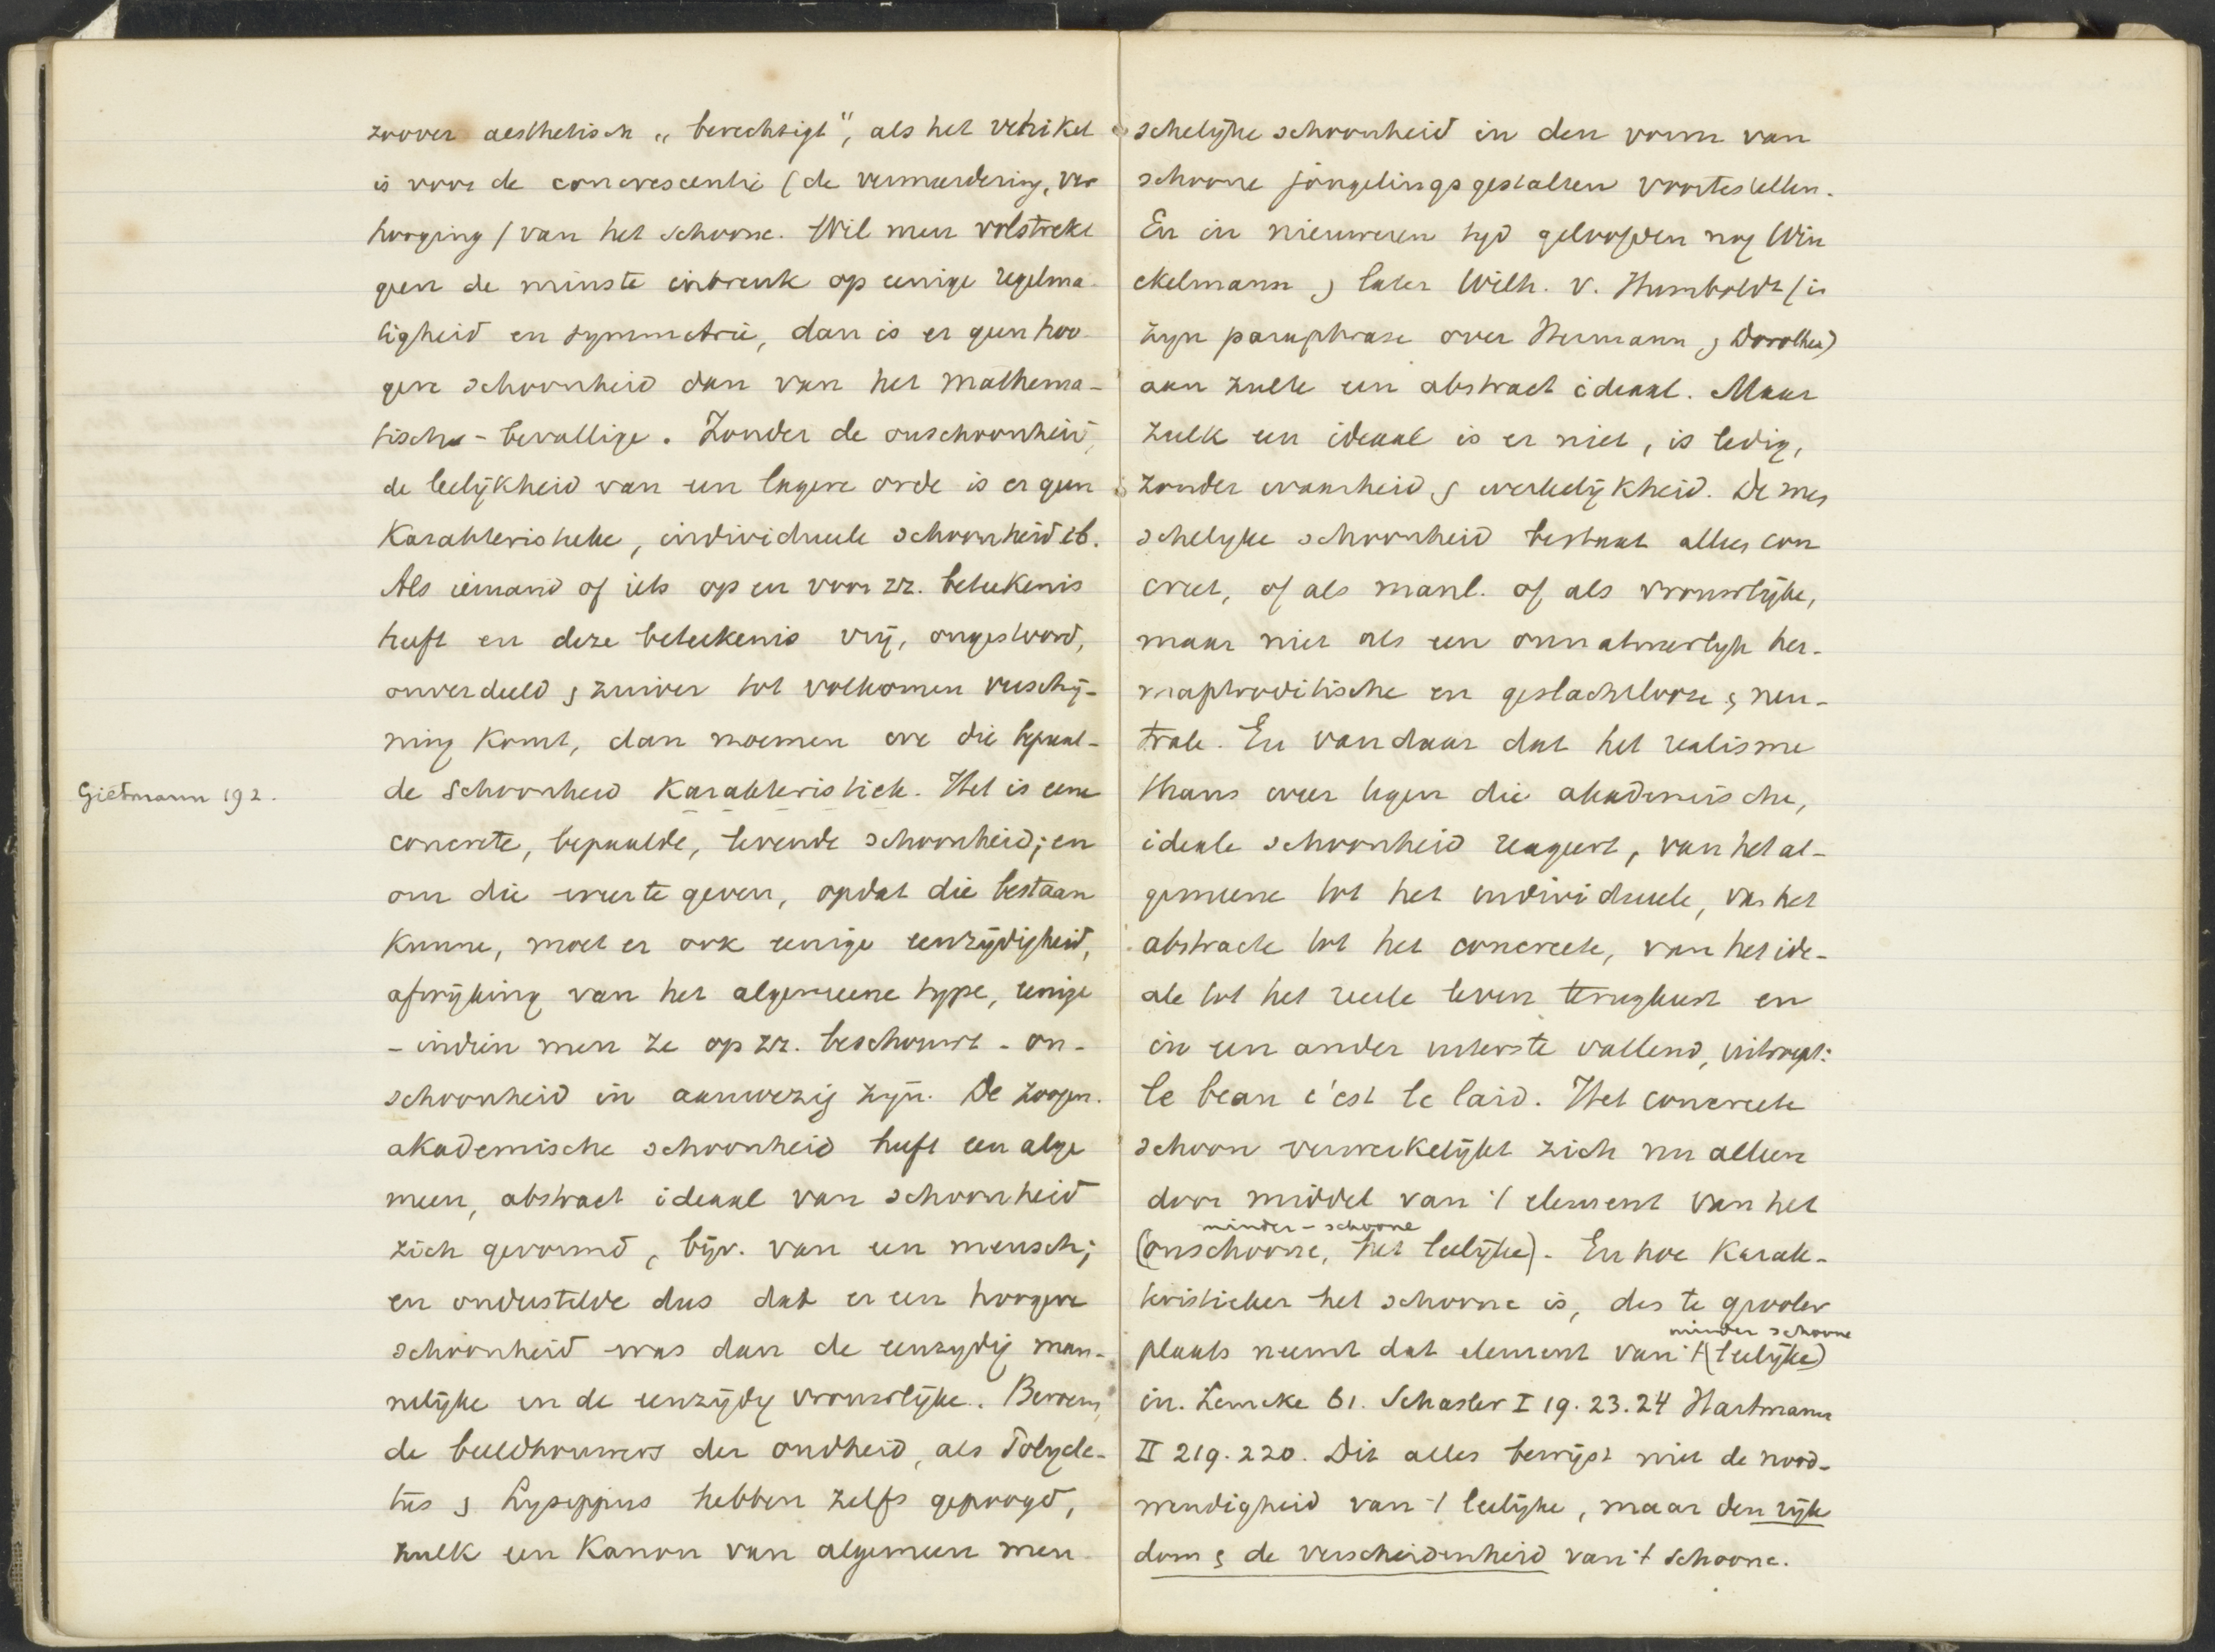 zoover aesthetisch „berechtigt", als het vehikel
is voor de concrescentie (de vermeerdering, ver
hooging) van het schoone. Wil men volstrekt
geen de minste inbreuk op eenige regelma-
tigheid en symmetrie, dan is er geen hoo-
gere schoonheid dan van het mathema-
tisch - bevallige. Zonder de onschoonheid,
de leelijkheid van een lagere orde is er geen
karakteristieke, individueele schoonheid ib.
Als iemand of iets op en voor zz. beteekenis
heeft en deze beteekenis vrij, ongestoord,
onverdeeld & zuiver tot volkomen verschij-
ning komt, dan noemen we die bepaal-
de schoonheid karakteristiek. Het is eene
Gietmann 192.
concrete, bepaalde, levende schoonheid; en
om die weer te geven, opdat die bestaan
kunne, moet er ook eenige eenzijdigheid,
afwijking van het algemeene type, eenige
- indien men ze op zz. beschouwt - on-
schoonheid in aanwezig zijn. De zoogen.
akademische schoonheid heeft een alge
meen, abstract ideaal van schoonheid
zich gevormd, bijv. van een mensch;
en onderstelde dus dat er een hoogere
schoonheid was dan de eenzijdig man-
nelijke en de eenzijdig vrouwelijke. Beroem
de beeldhouwers der oudheid, als Polycle-
tus & Lysippus hebben zelfs gepoogd,
zulk een Kanon van algemeen men
schelijke schoonheid in den vorm van
schoone jongelingsgestalten voortestellen.
En in nieuweren tijd geloofden nog Win
ckelmann & later Wilh. v. Humboldt (in
zijn paraphrase over Hermann & Dorothea)
aan zulk een abstract ideaal. Maar
zulk een ideaal is er niet, is ledig,
zonder waarheid & werkelijkheid. De men
schelijke schoonheid bestaat alleen con
creet, of als manl. of als vrouwelijke,
maar niet als een onnatuurlijk her-
maphroditische en geslachtlooze & neu-
trale. En vandaar dat het realisme
thans weer tegen die akademische,
ideale schoonheid reageert, van het al-
gemeene tot het individueele, van het
abstracte tot het concreete, van het ide-
ale tot het reeele leven terugkeert en
in een ander uiterste vallend, uitroept:
le beau c'est le laid. Het concreete
schoon verwerkelijkt zich nu alleen
door middel van 't element van het
minder - schoone
(onschoone, het leelijke). En hoe karak-
teristieker het schoone is, des te grooter
minder schoone
plaats neemt dat element van 't (leelijke)
in. Lemcke 61. Schasler I 19. 23. 24 Hartmann
II 219. 220. Dit alles bewijst niet de nood-
wendigheid van 't leelijke, maar den rijk
dom & de verscheidenheid van 't schoone.